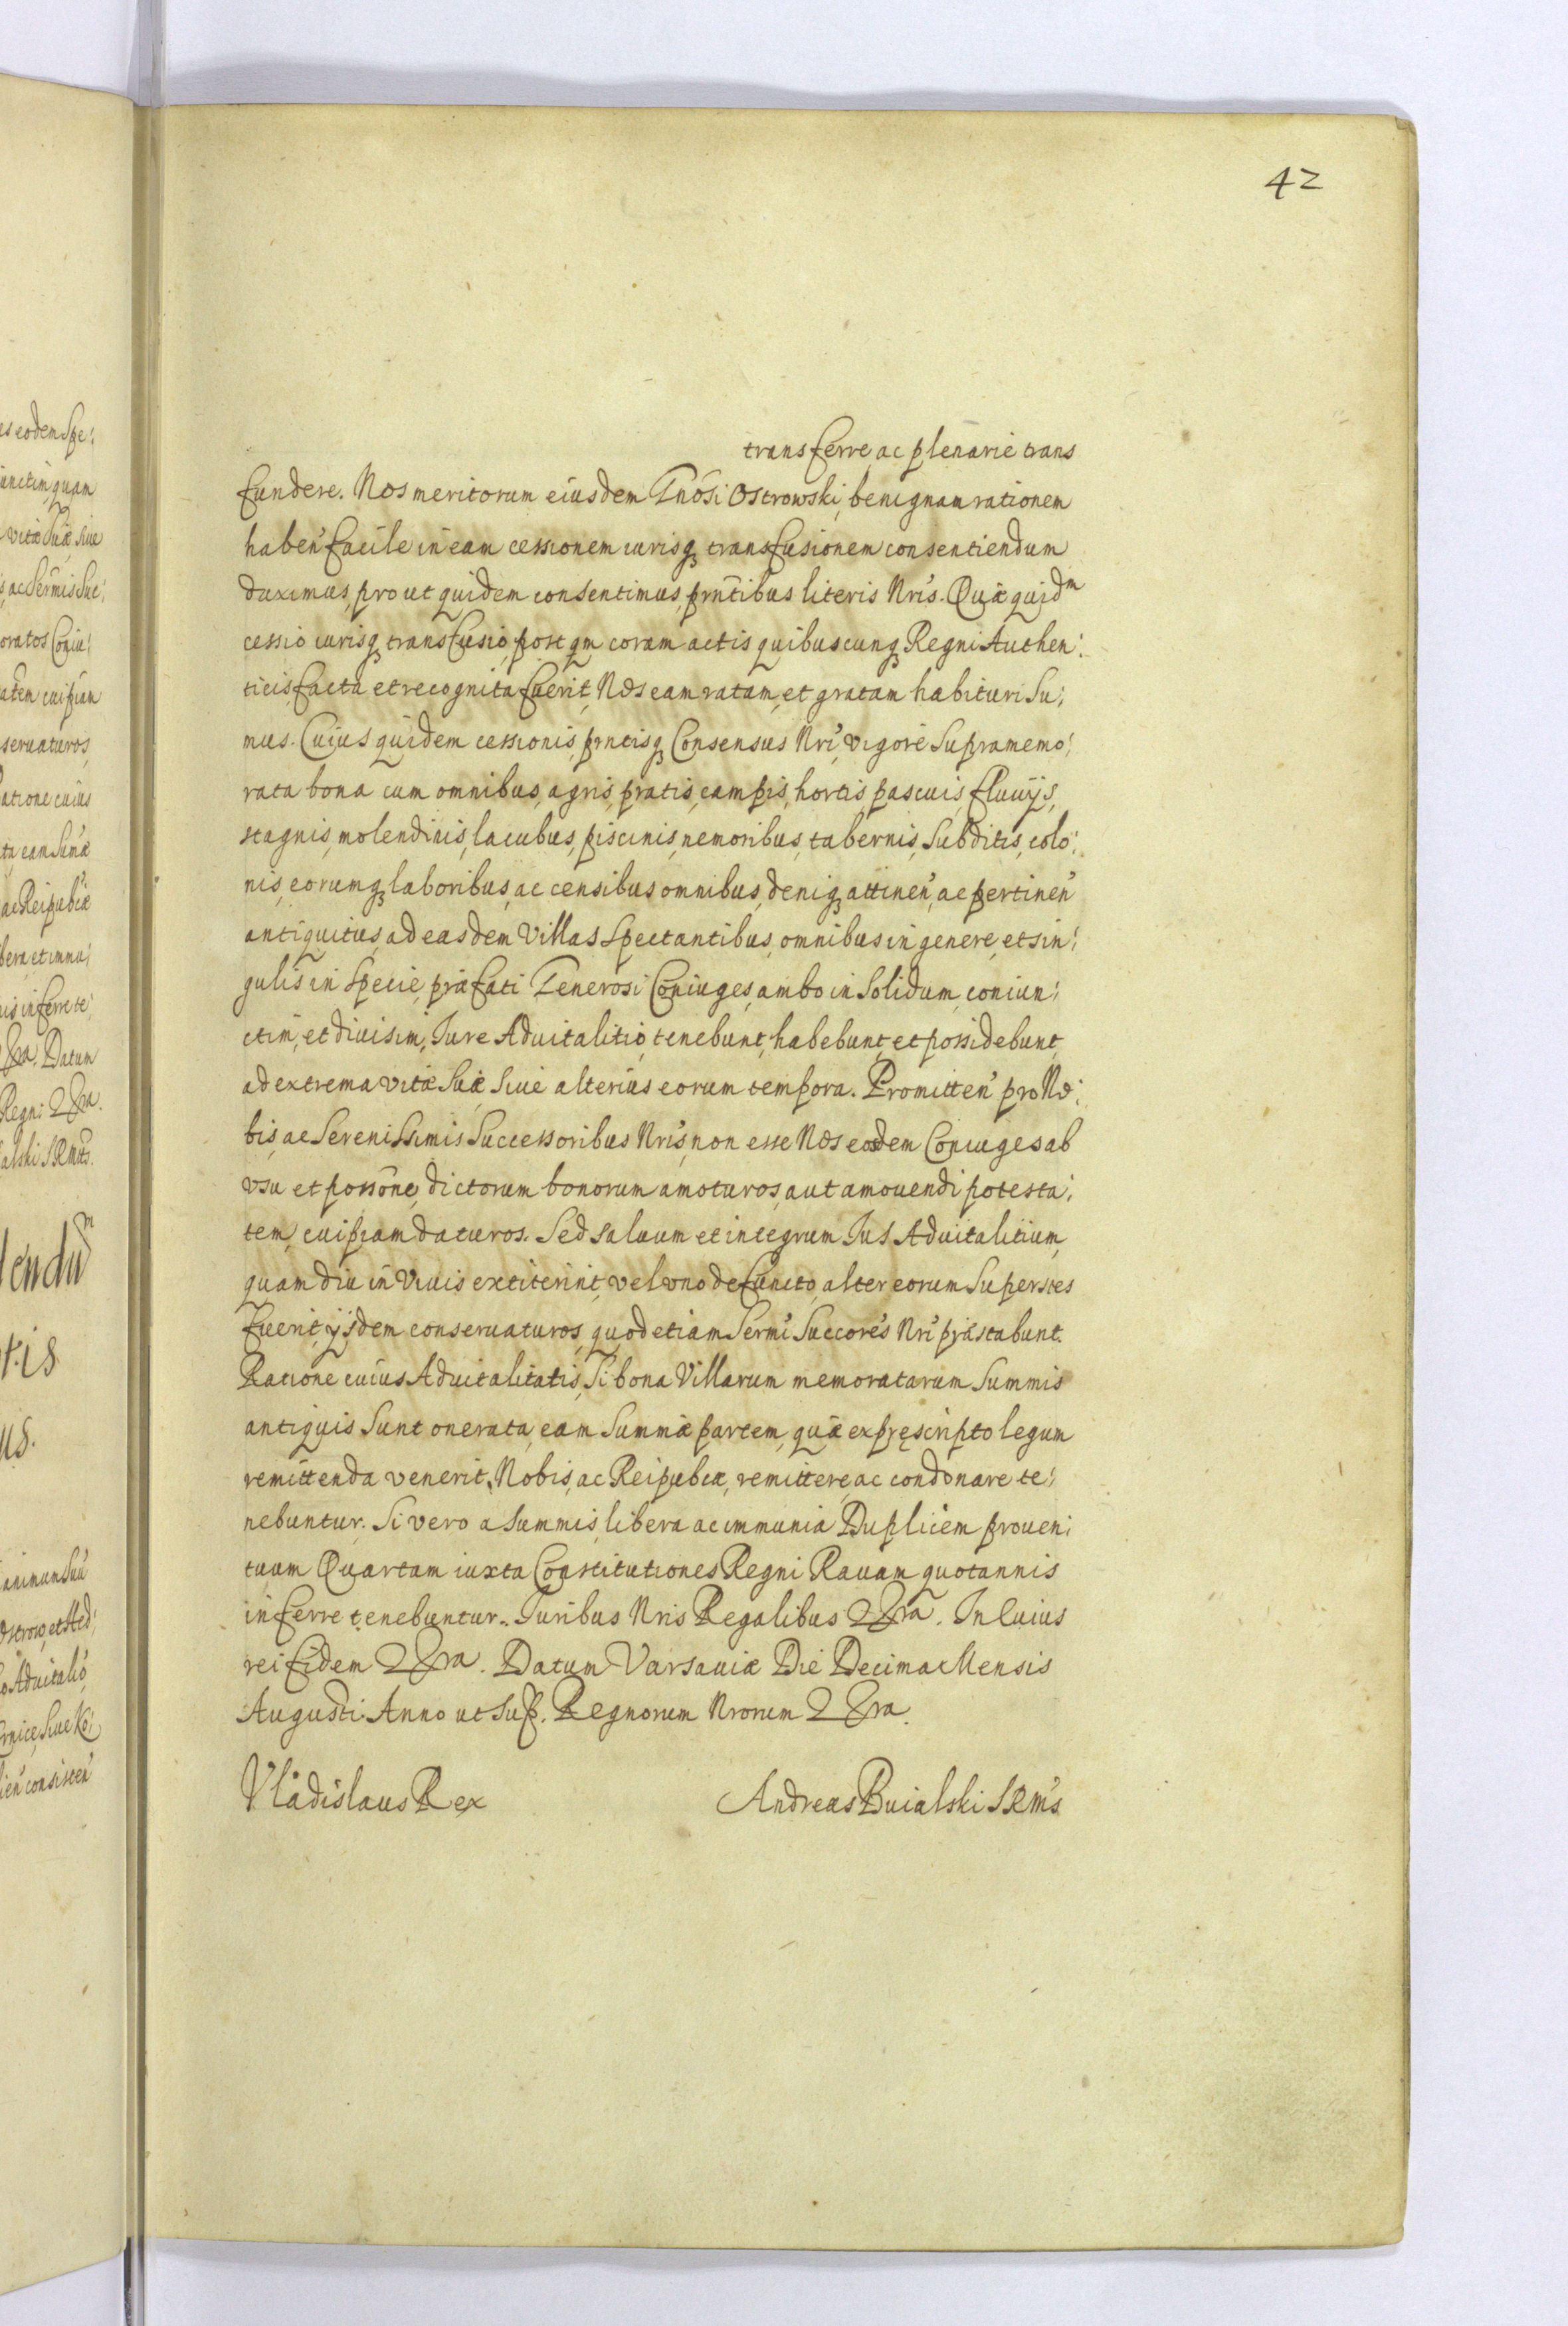 42
transferre, ac plenarie trans
fundere. Nos meritorum eiusdem Gnosi Ostrowski, benignam rationem
haben̄ facile in eam cessionem iurisq̃ transfusionem consentiendum
duximus, pro ut quidem consentimus, pr̄ntibus literis Nris̃. Quæ quidᵐ
cessio iurisq̃ transfusio, post qm̃ coram actis quibuscunq̃ Regni Authen:
ticis facta et recognita fuerit, Nos eam ratam, et gratam habituri su:
mus. Cuius quidem cessionis, pr̄ntisq̃ Consensus Nri, vigore supramemo:
rata bona cum omnibus, agris, pratis, campis, hortis, pascuis, fluuijs,
stagnis, molendinis, lacubus, piscinis, nemoribus, tabernis, subditis, colo:
nis, eorumq̃ laboribus, ac censibus omnibus, deniq̃ attinen̄, ac pertinen̄
antiquitus, ad easdem Villas spectantibus, omnibus in genere, et sin:
gulis in specie, præfati Generosi Coniuges, ambo in solidum, coniun:
ctim, et diuisim, Iure Aduitalitio, tenebunt, habebunt, et possidebunt,
ad extrema vitæ suæ siue alterius eorum tempora. Promitten̄ pro No:
bis, ac Serenissimis Successoribus Nris̃, non esse Nos eosdem Coniuges ab
vsu et possõne, dictorum bonorum amoturos, aut amouendi potesta:
tem, cuipiam daturos. Sed saluum et integrum Ius Aduitalitium,
quam diu in viuis extiterint, vel vno defuncto, alter eorum superstes
fuerit, ijsdem conseruaturos, quod etiam Sermĩ Succorẽs Nri præstabunt.
Ratione cuius Aduitalitatis, si bona Villarum memoratarum summis
antiquis sunt onerata, eam summæ partem, quæ ex pręscripto legum
remittenda venerit, Nobis, ac Reipubcæ, remittere, ac condonare te:
nebuntur. Si vero a summis, libera ac immunia Duplicem proueni
tuum Quartam iuxta Constitutiones Regni Rauam quotannis
inferre tenebuntur. Iuribus Nris Regalibus &ra. In Cuius
rei fidem &ra. Datum Varsauiæ Die Decima Mensis
Augusti Anno ut sup. Regnorum Nrorum &ra
Vladislaus Rex
Andreas Buialski S R Mts̃